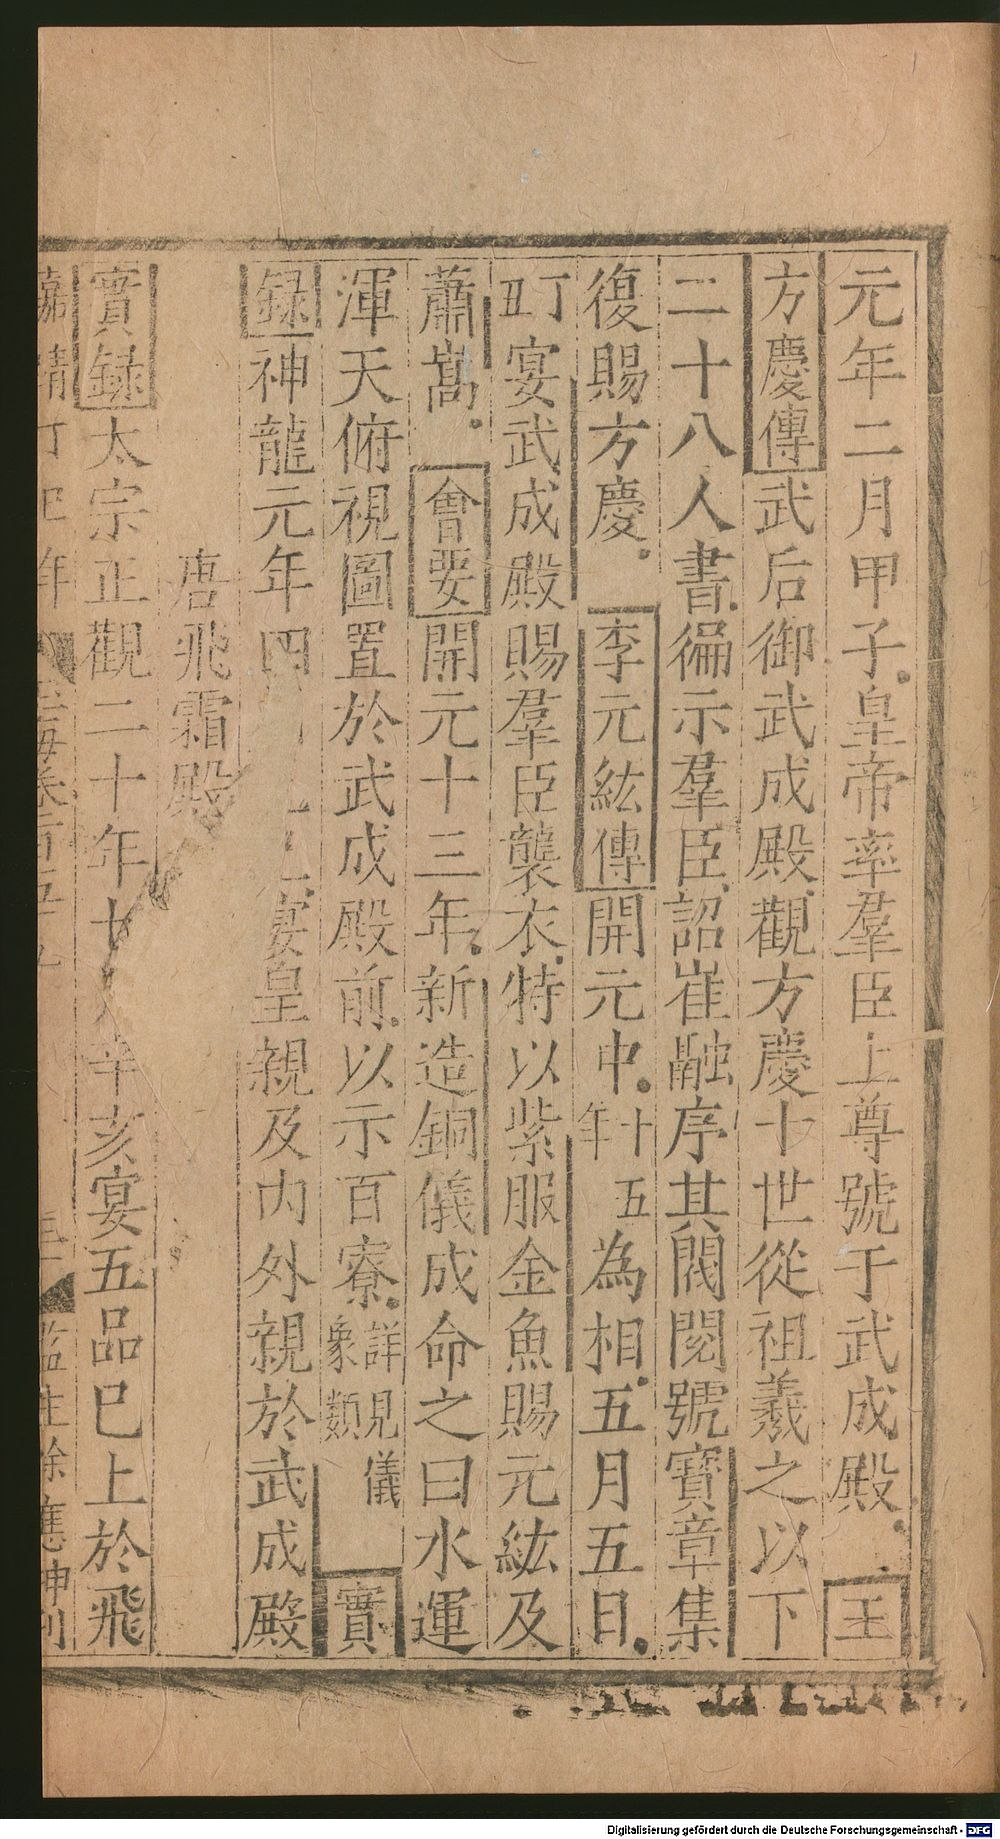 元年二月甲子皇帝率羣臣上尊號于武成殿 王
方慶傳武后御武成殿觀方慶十世從祖羲之以下
二十八人書徧示羣臣詔崔融序其閥閱號寶章集
復賜方慶 李元紘傳開元中十五年為相五月五日
宴武成殿賜羣臣襲衣特以紫服金魚賜元紘及
蕭嵩 會要開元十三年新造銅儀成命之曰水運
渾天俯視圖置於武成殿前以示百寮詳見儀象類 實
録神龍元年四 宴皇親及內外親於武成殿
唐飛霜殿
實録太宗正觀二十年十 辛亥宴五品已上於飛
嘉靖丁巳年 玉海卷百五十九 監生徐應坤刊
Digitalisierung gefördert durch die Deutsche Forschungsgemeinschaft - DFG